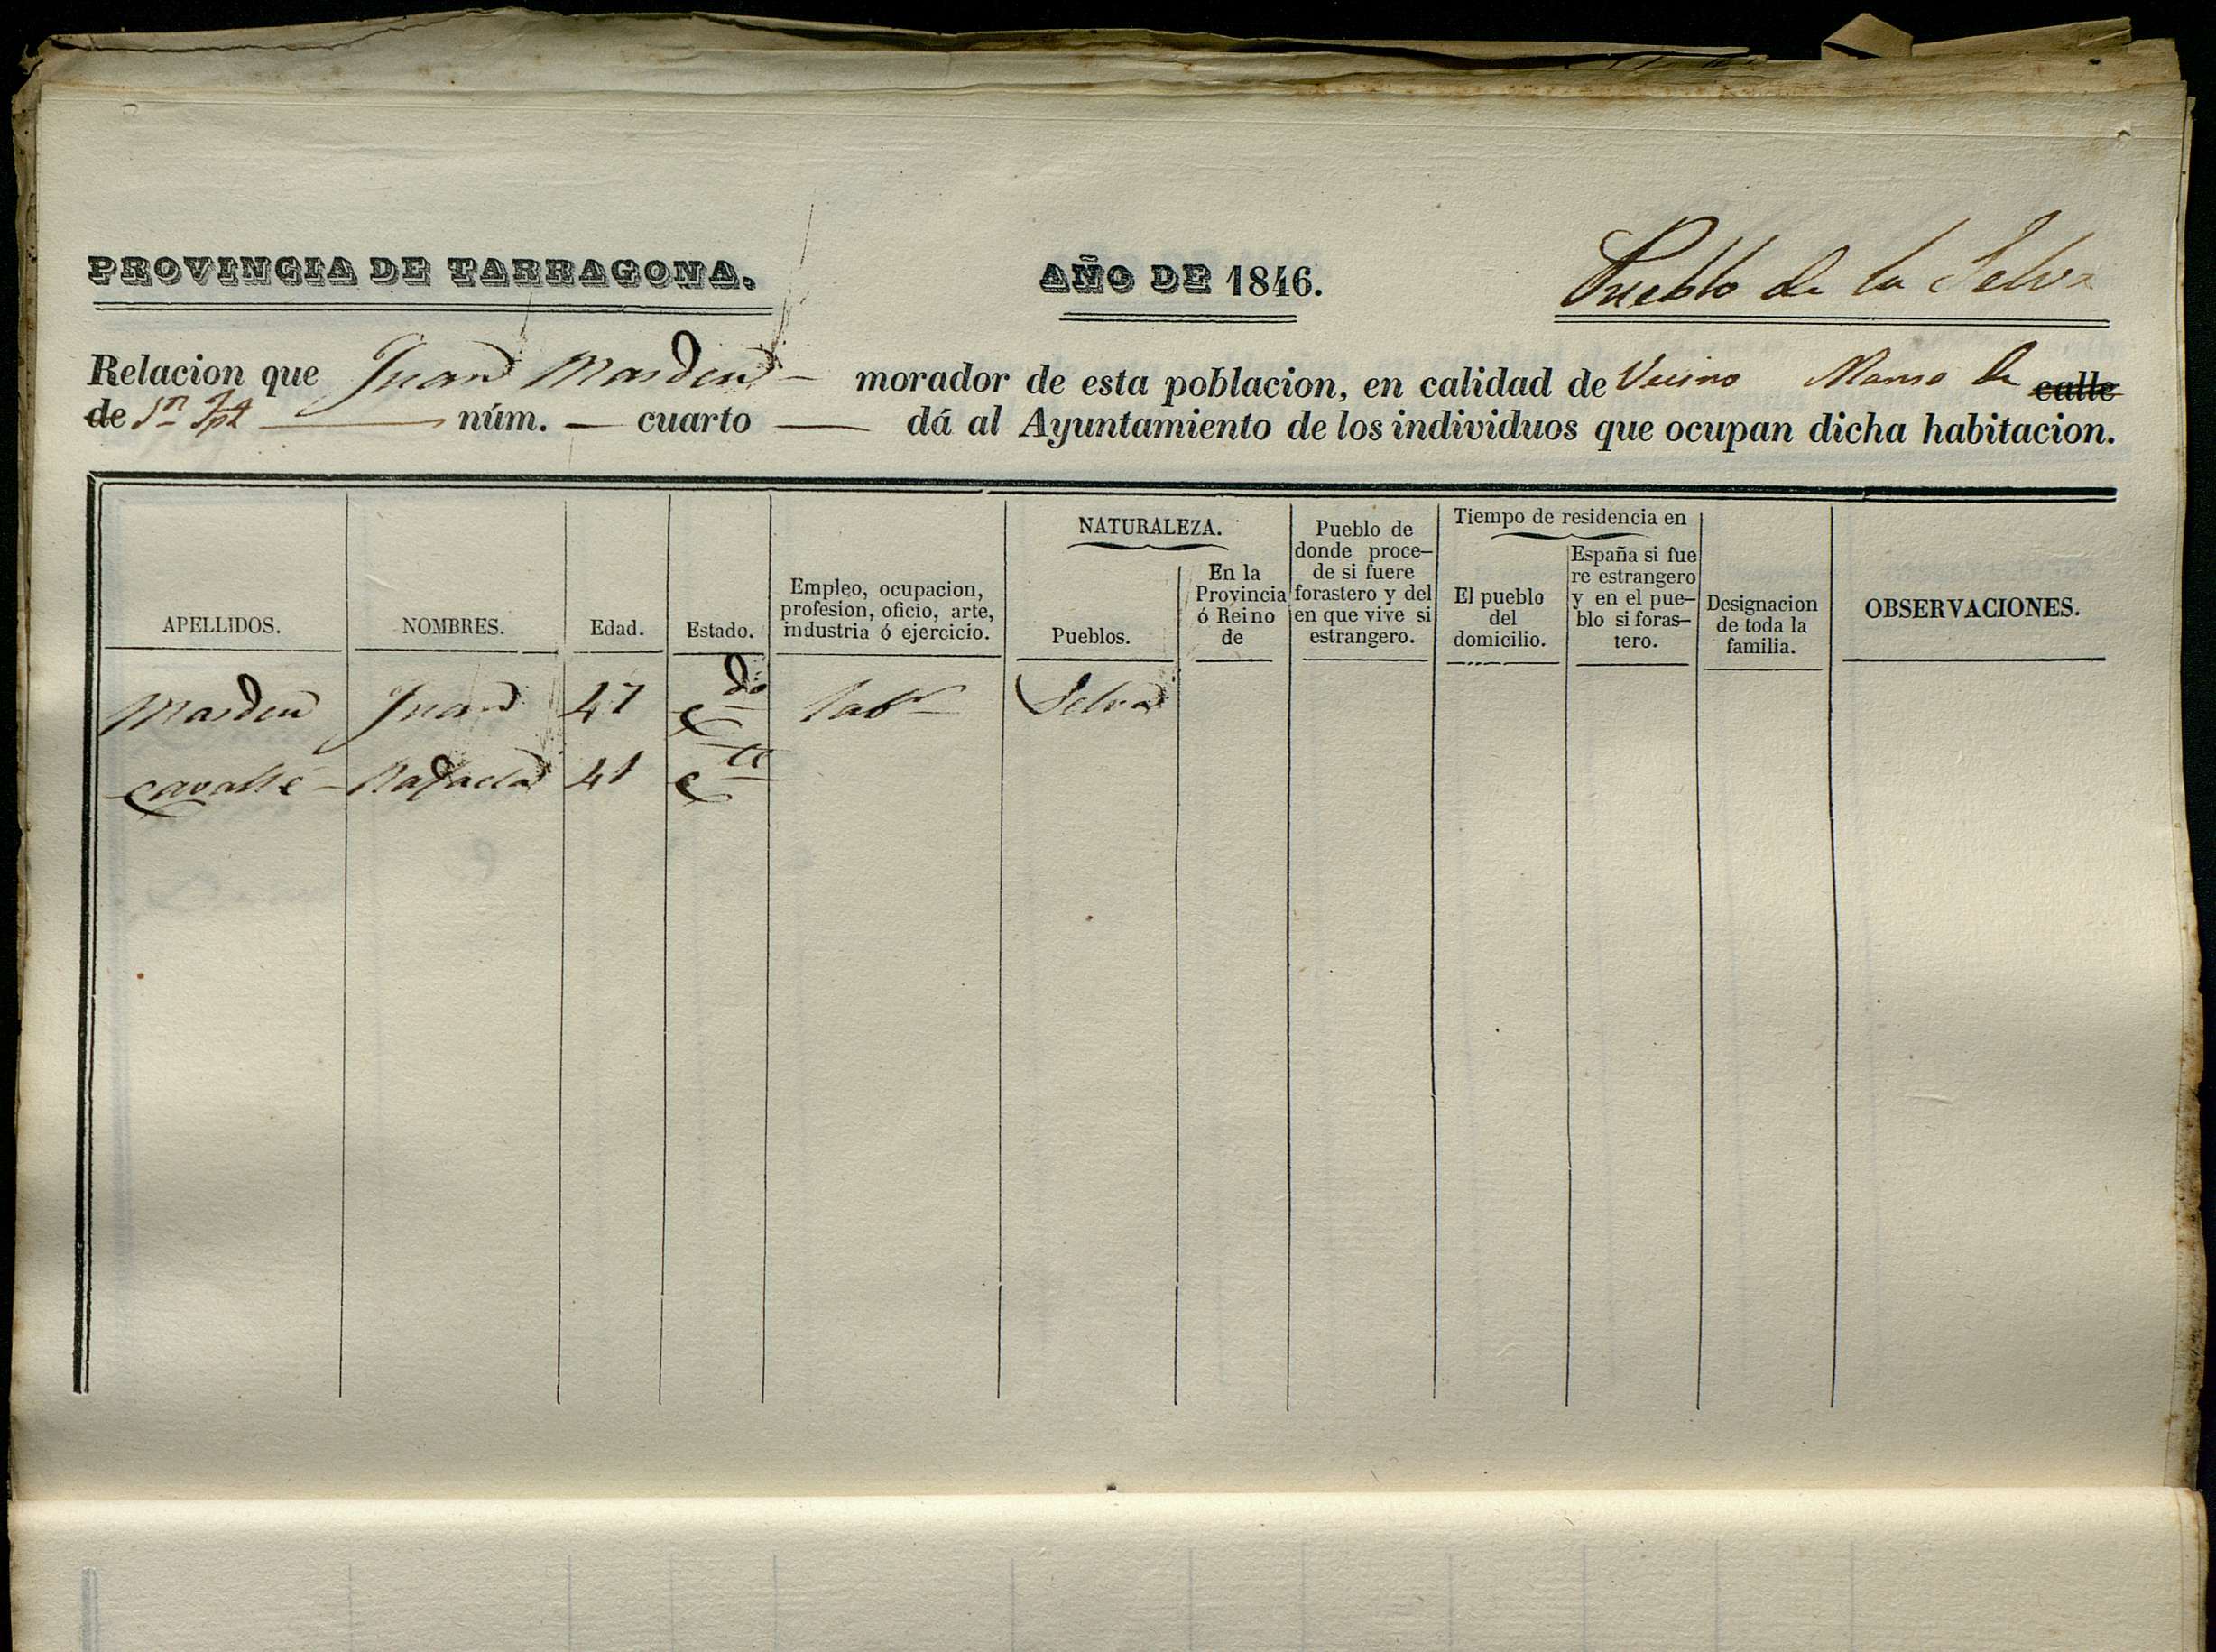 PROVINCIA DE TARRAGONA. AÑO DE 1846. Pueblo de la Selva
Relacion que Juan Masdeu morador de esta poblacion, en calidad de Vecino Manso de calle
de Sn Jph núm. — cuarto — dá al Ayuntamiento de los individuos que ocupan dicha habitacion.
APELLIDOS. NOMBRES. Edad. Estado. Empleo, ocupacion, profesion, oficio, arte, industria ó ejercicio. NATURALEZA. Pueblos. En la Provincia ó Reino de Pueblo de donde proce- de si fuere forastero y del en que vive si estrangero. Tiempo de residencia en El pueblo del domicilio. España si fue re estrangero y en el pue- blo si foras- tero. Designacion de toda la familia. OBSERVACIONES.
Masdeu Juan 47 Cdo labr Selva
Cavallé Rafaela 41